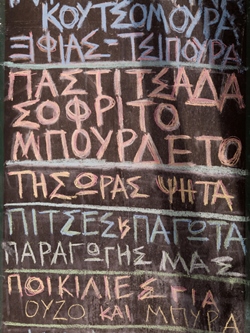 ΚΟΥΤΣΟΜΟΥΡΑ
ΞΙΦΙΑΣ-ΤΣΙΠΟΥΡΑ
ΠΑΣΤΙΤΣΑΔΑ
ΣΟΦΡΙΤΟ
ΜΠΟΥΡΔΕΤΟ
ΤΗΣ ΩΡΑΣ ΨΗΤΑ
ΠΙΤΣΕΣ & ΠΑΓΩΤΑ
ΠΑΡΑΓΩΓΗΣ ΜΑΣ
ΠΟΙΚΙΛΙΕΣ ΓΙΑ
ΟΥΖΟ ΚΑΙ ΜΠΥΡΑ